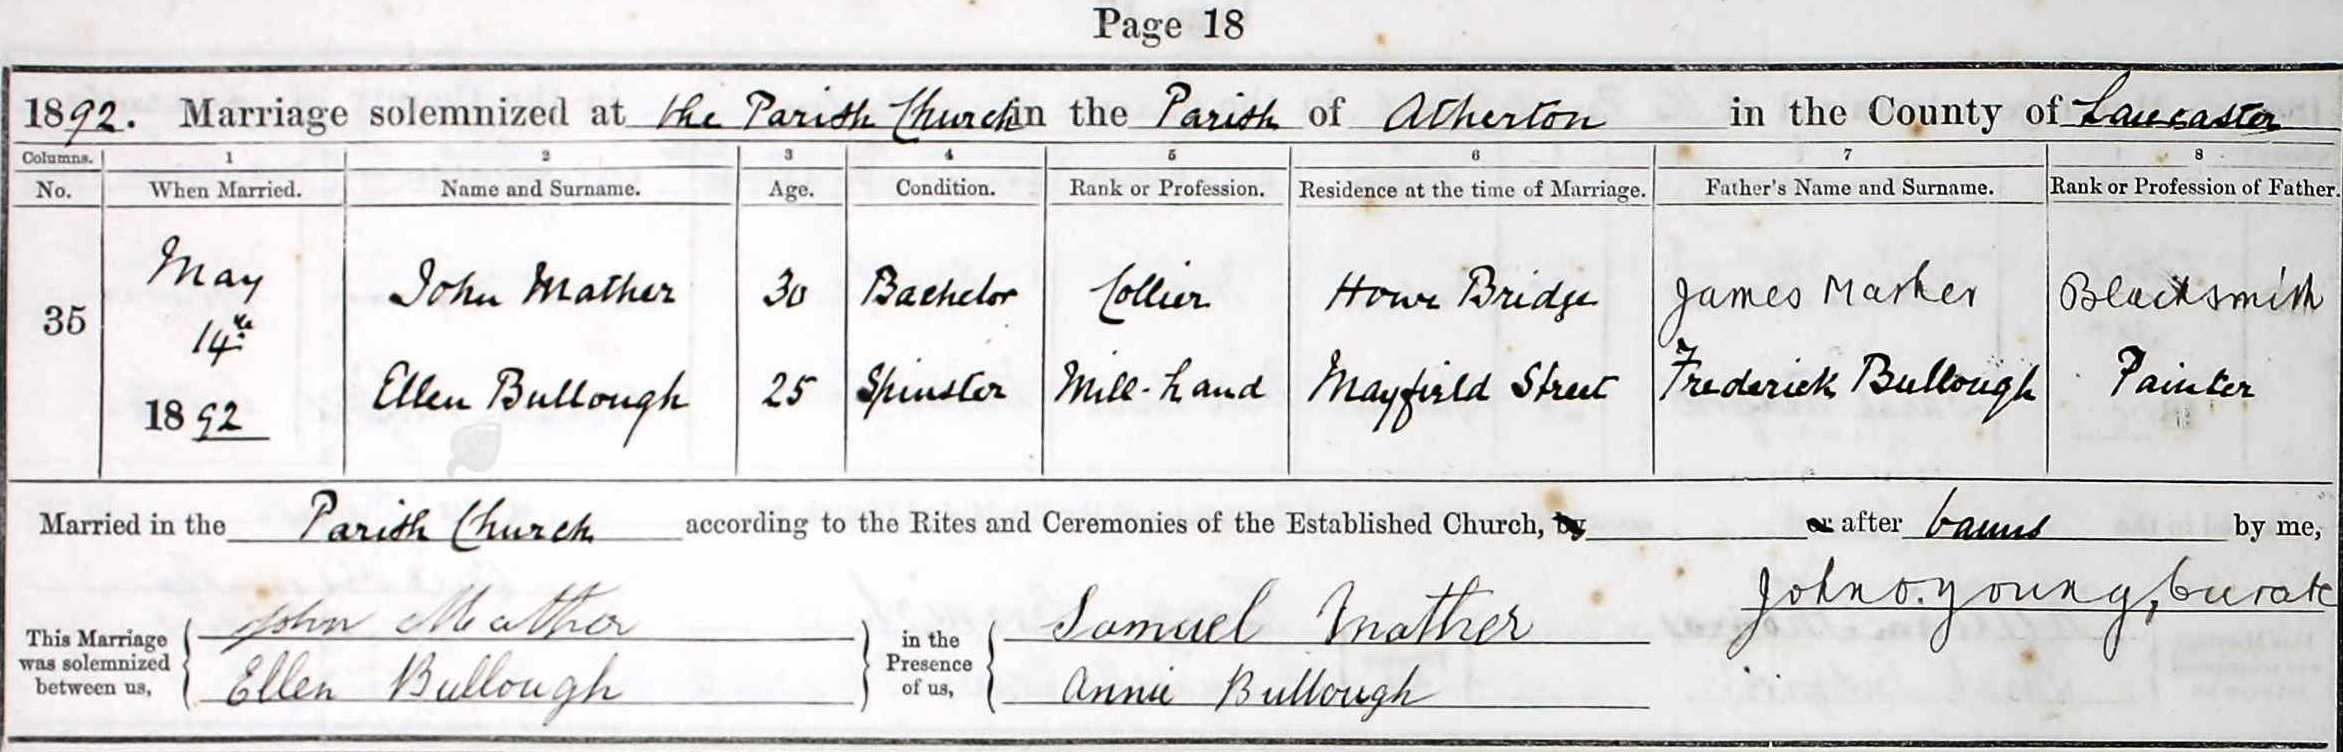 Page 18
1892. Marriage solemnized at the Parish Church in the Parish of Atherton in the County of Lancaster
Columns. 1 2 3 4 5 6 7 8
No. When Married. Name and Surname. Age. Condition. Rank or Profession. Residence at the time of Marriage. Father's Name and Surname. Rank or Profession of Father.
35 May 14th 1892
John Mather 30 Bachelor Collier Howe Bridge James Mather Blacksmith
Ellen Bullough 25 Spinster Mill-hand Mayfield Street Frederick Bullough Painter
Married in the Parish Church according to the Rites and Ceremonies of the Established Church, by or after banns by me,
John O. Young, Curate
This Marriage was solemnized between us,
John Mather
Ellen Bullough
in the Presence of us,
Samuel Mather
Annie Bullough